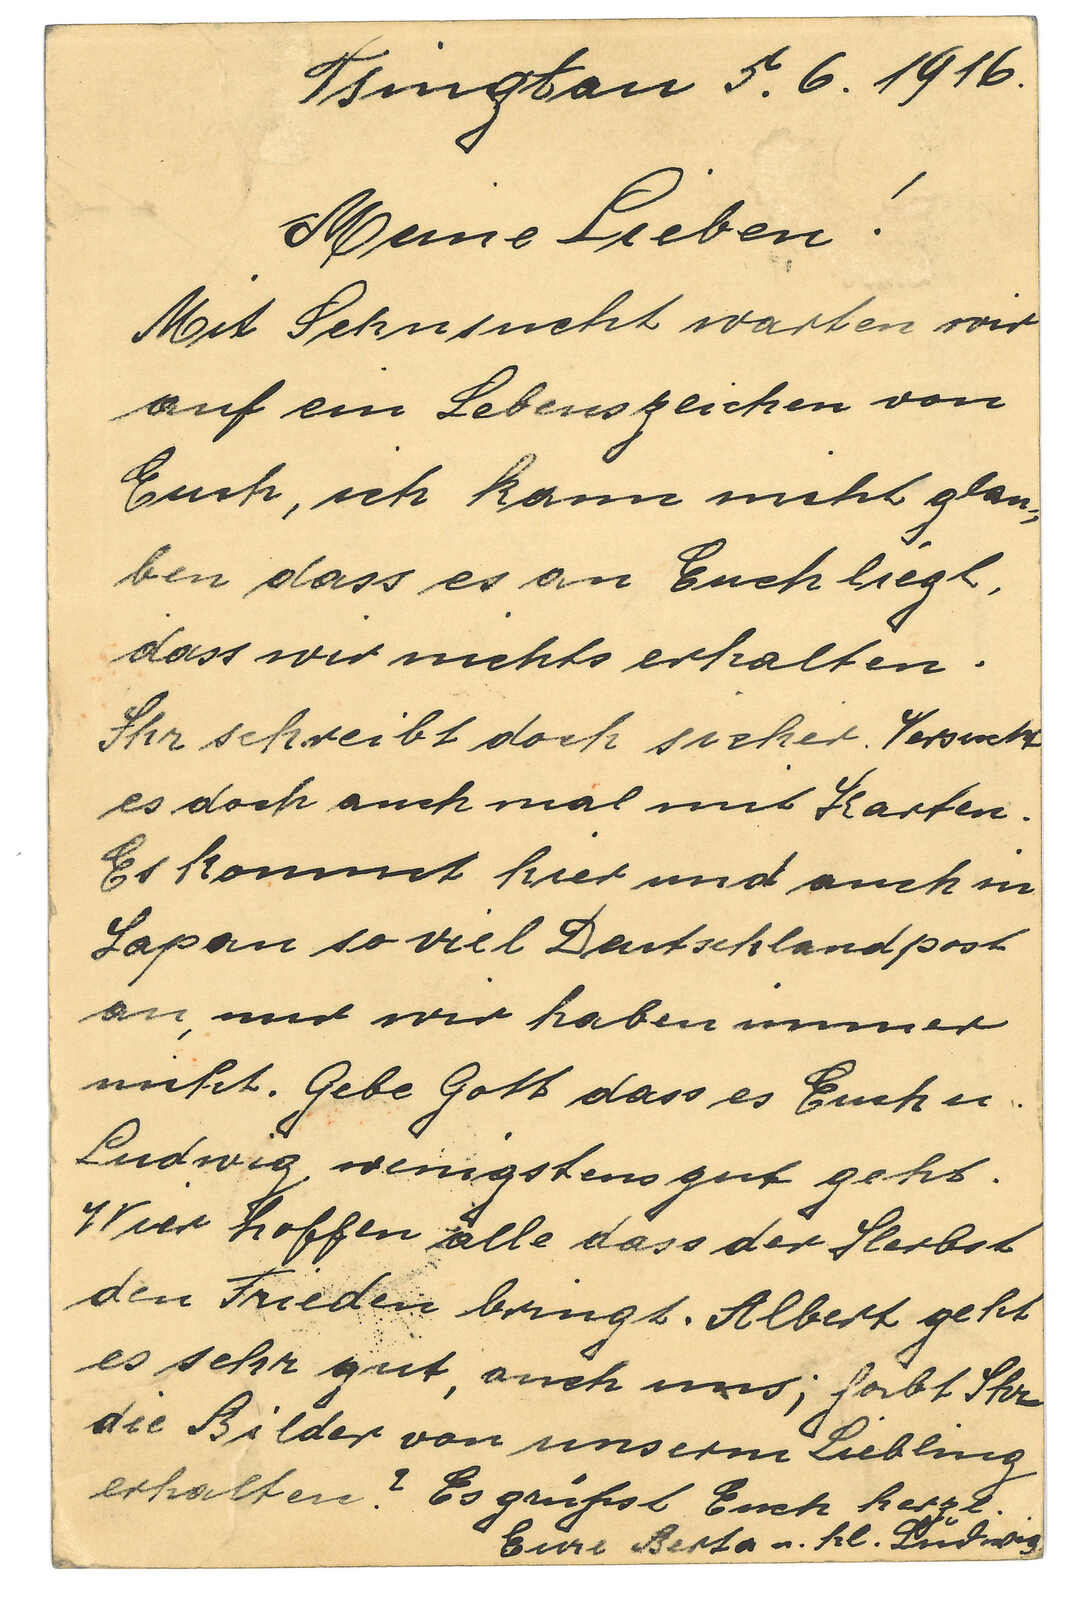 Tsingtau 5. 6. 1916.
Meine Lieben!
Mit Sehnsucht warten wir
auf ein Lebenszeichen von
Euch, ich kann nicht glau-
ben dass es an Euch liegt,
dass wir nichts erhalten.
Ihr schreibt doch sicher. Versucht
es doch auch mal mit Karten.
Es kommt hier und auch in
Japan so viel Deutschlandpost
an, nur wir haben immer
nicht. Gebe Gott dass es Euch u.
Ludwig wenigstens gut geht.
Wier hoffen alle dass der Herbst
den Frieden bringt. Albert geht
es sehr gut, auch uns; habt Ihr
die Bilder von unserm Liebling
erhalten? Es grüßst Euch herzl.
Eure Berta u. kl. Ludwig